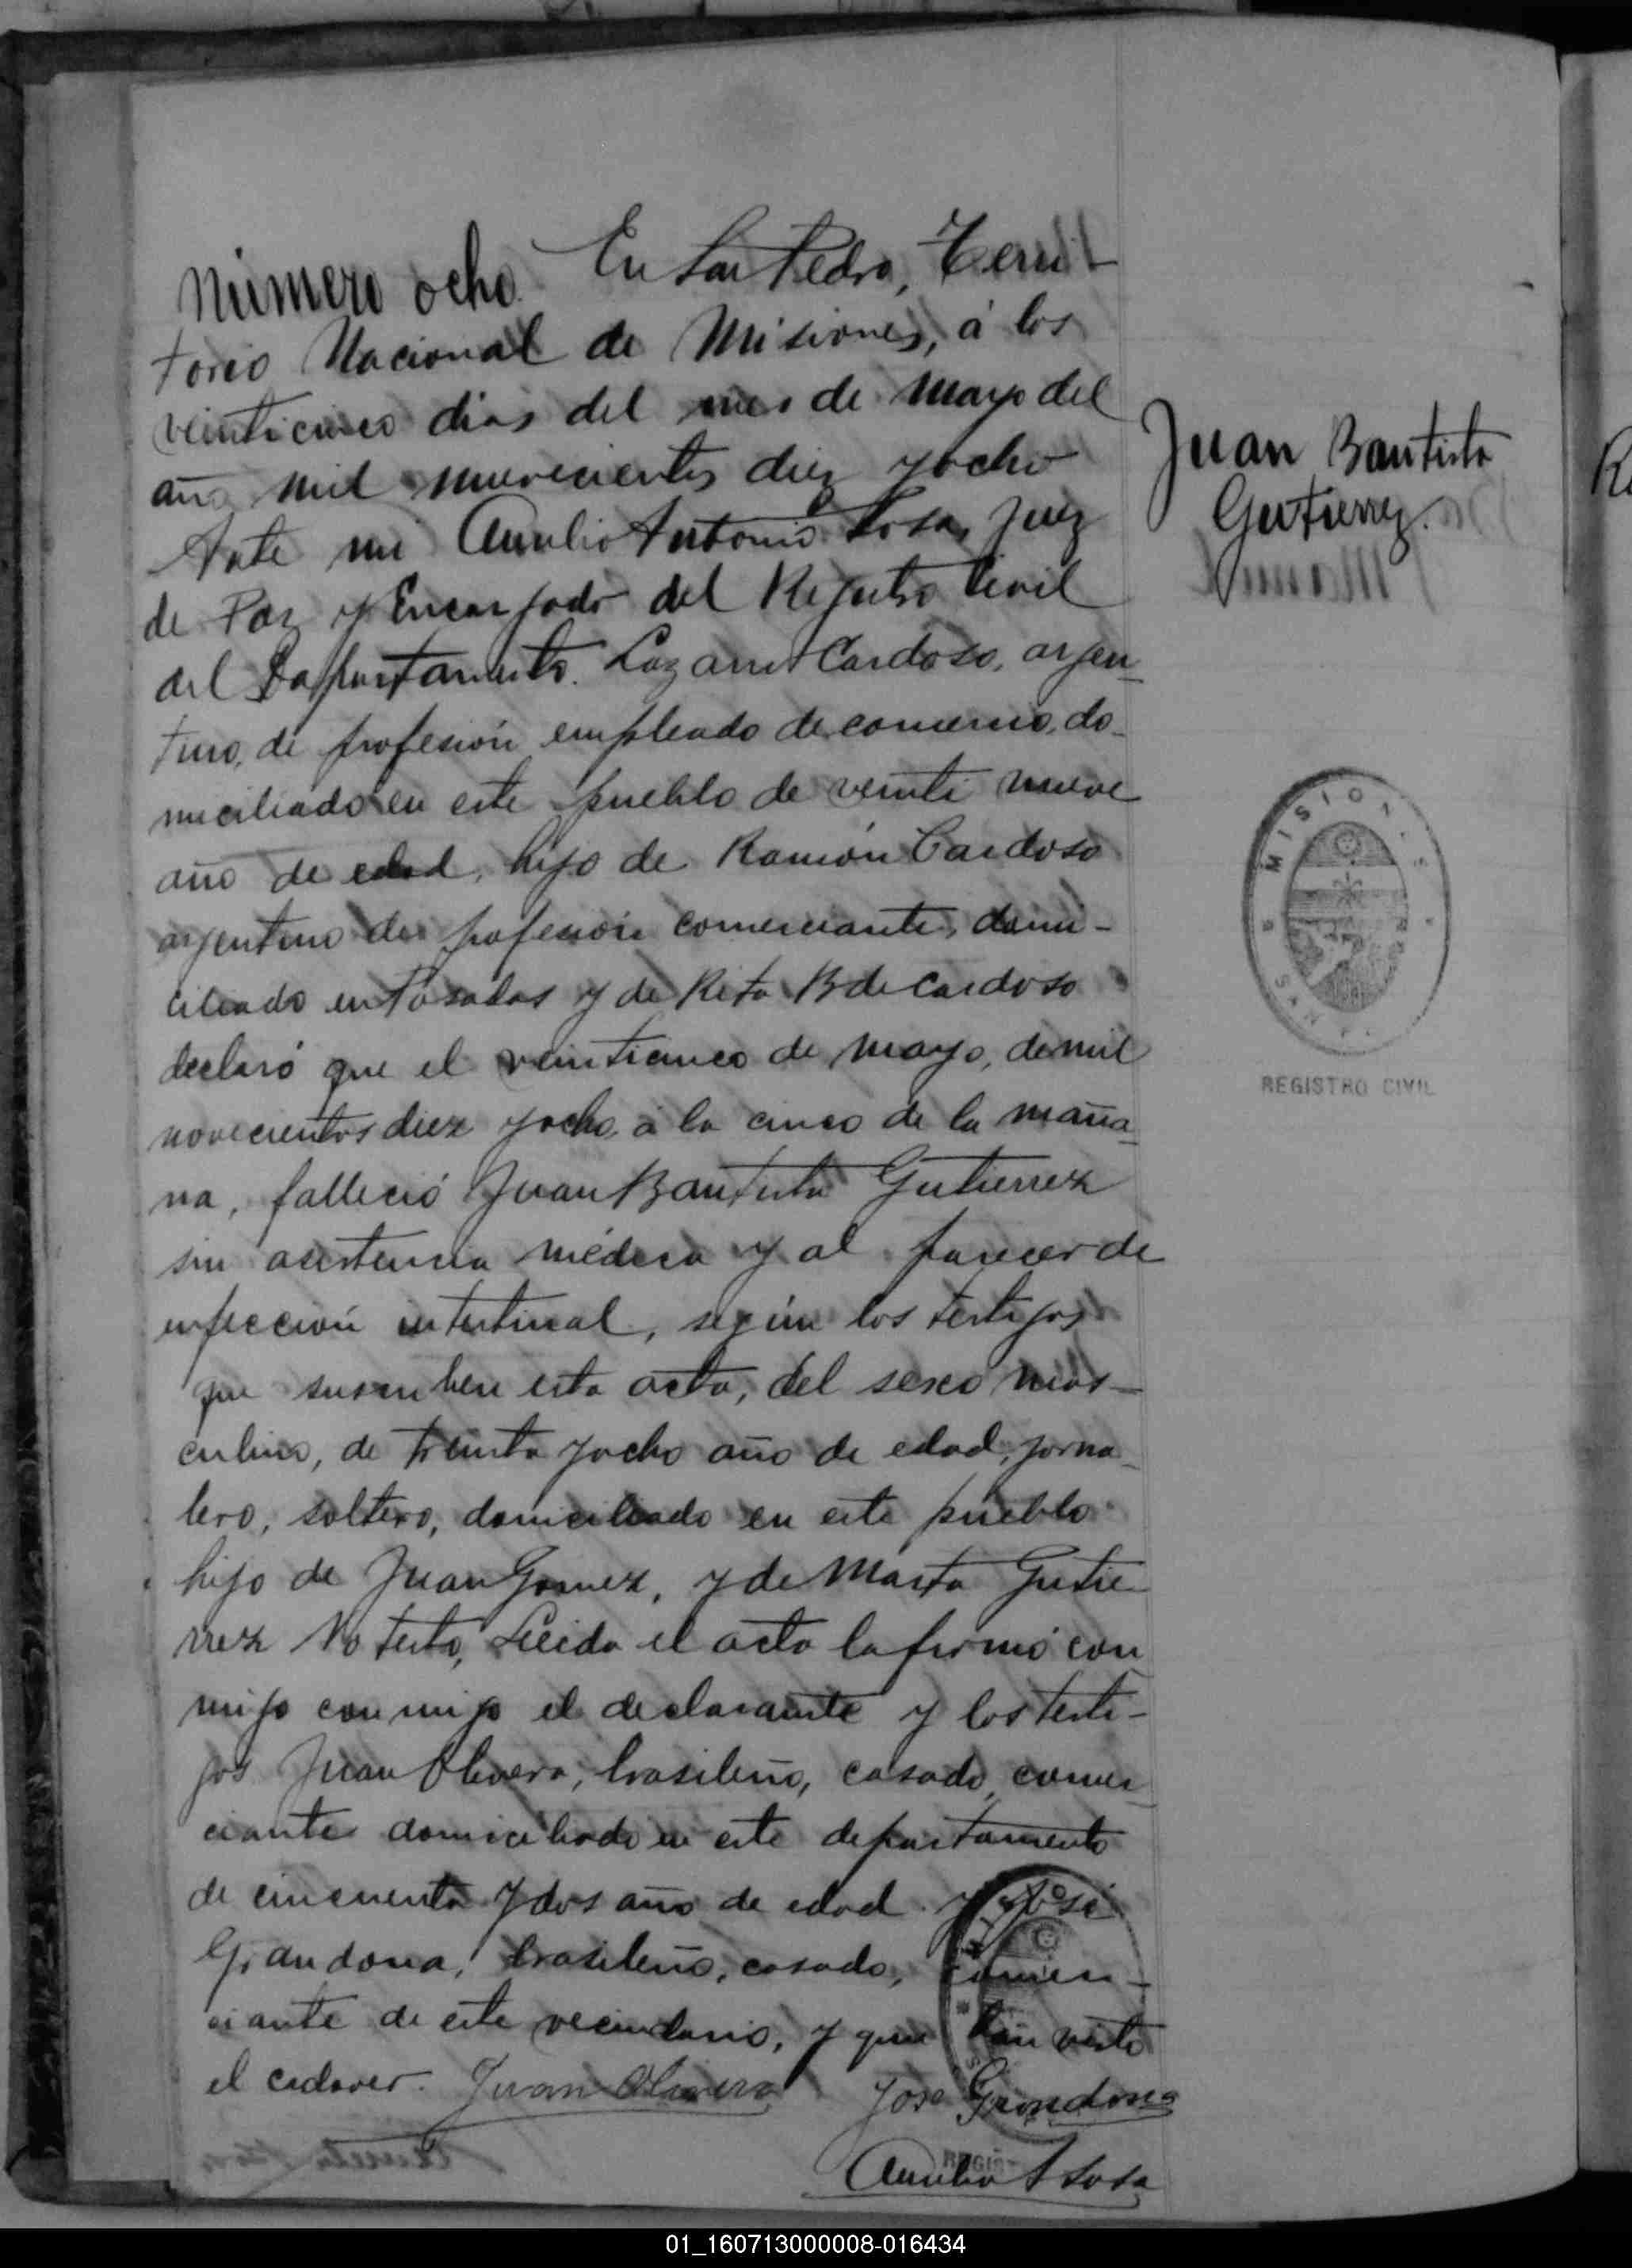 Número ocho. En San Pedro, Terri-
torio Nacional de Misiones, á los
veinticinco dias del mes de Mayo del
año mil nuevecientos diez y ocho
Ante mi Aurelio Antonio Sosa, Juez
de Paz y Encargado del Registro Civil
del Departamento. Cardoso, argen-
tino, de profesión empleado de comercio, do-
miciliado en este pueblo de veinti nueve
año de edad, hijo de Ramón Cardoso
argentino de profesión comerciante, domi-
ciliado en Posadas y de Rita B de Cardoso
declaró que el veinticinco de Mayo, de mil
novecientos diez y ocho, á la cinco de la maña-
na, falleció Juan Bautista Gutierrez
sin asistencia médica y al parecer de
infección intestinal, según los testigos
que suscriben esta acta, del sexo mas-
culino, de treinta y ocho año de edad, jorna-
lero, soltero, domiciliado en este pueblo
hijo de Juan Gomez, y de Marta Gutie-
rrez No testo, Leida el acta la firmó con
migo conmigo el declarante y los testi-
gos Juan Olivera, brasileño, casado, comer-
ciante domiciliado en este departamento
de cincuenta y dos año de edad y José
Grandona, brasileño, casado, comer-
ciante de este vecindario, y que han visto
el cadaver. Juan Olivera José Grondona
Aurelio A Sosa
Juan Bautista
Gutierrez.
MISIONES
SAN P
REGISTRO CIVIL
REGIS
01_160713000008-016434